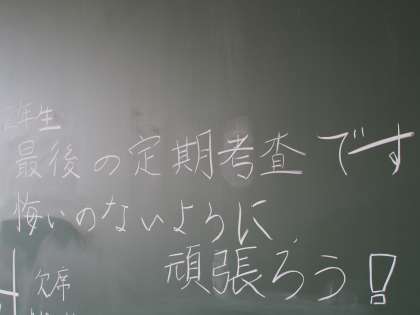 年生
最後の定期考査です
悔いのないように、
頑張ろう!
欠席